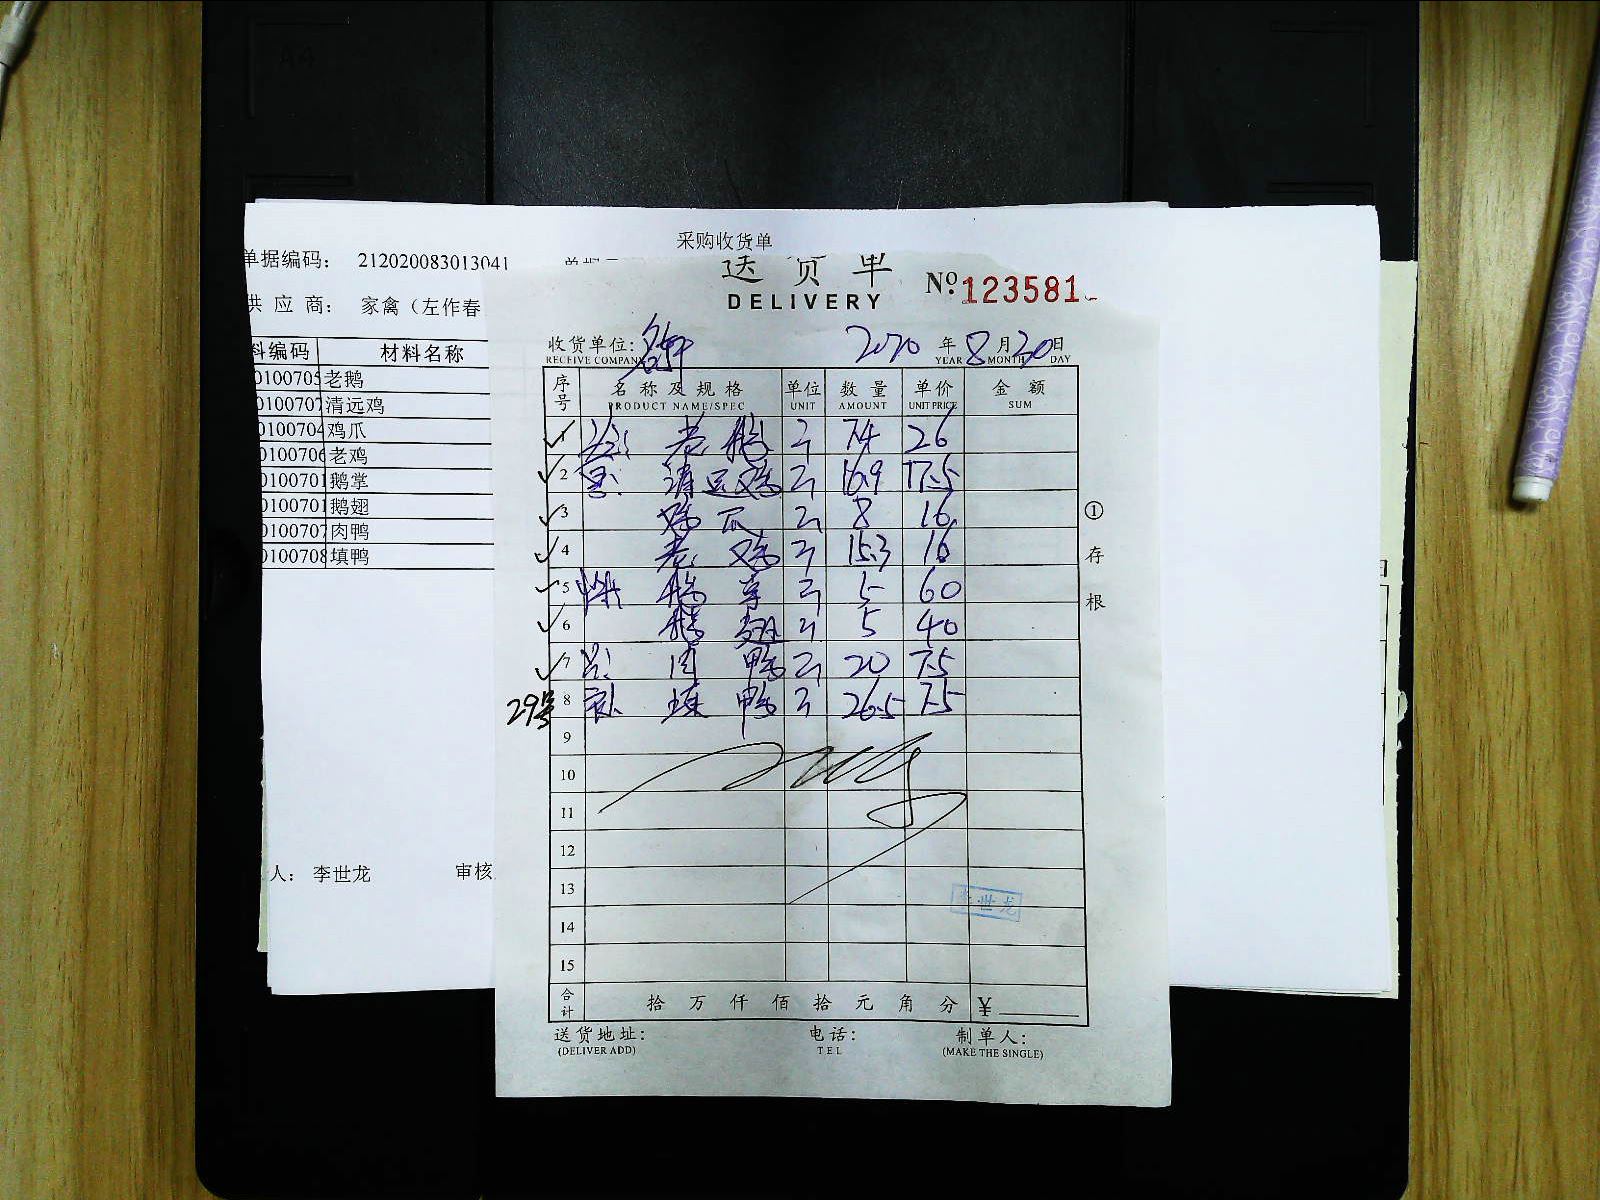 采购收货单
单据编码: 212020083013041
供应商: 家禽(左作春
料编码 材料名称
0100705 老鹅
0100707 清远鸡
0100704 鸡爪
0100706 老鸡
0100701 鹅掌
0100701 鹅翅
0100707 肉鸭
0100708 填鸭
人: 李世龙 审核
送货单
DELIVERY
No. 123581
收货单位:
RECEIVE COMPANY
2020 年 8 月 30 日
YEAR MONTH DAY
序号 名称及规格 单位 数量 单价 金额
PRODUCT NAME/SPEC UNIT AMOUNT UNIT PRICE SUM
1 老鹅 斤 74 26
2 清远鸡 斤 16.9 17.5
3 鸡爪 斤 8 16
4 老鸡 斤 15.3 16
5 鹅掌 斤 5 60
6 鹅翅 斤 5 40
7 肉鸭 斤 20 7.5
29号 8 填鸭 斤 26.5 7.5
9
10
11
12
13
李世龙
14
15
合计 拾万仟佰拾元角分 ¥
送货地址: 电话: 制单人:
(DELIVER ADD) TEL (MAKE THE SINGLE)
①存根